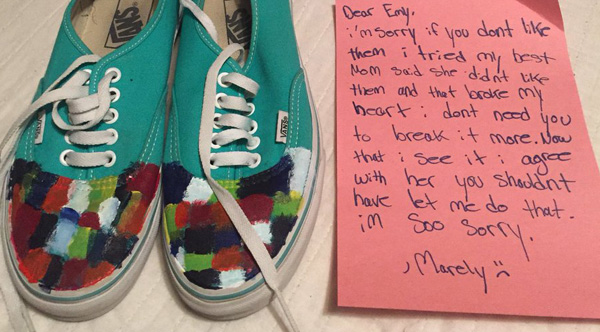 VANS
VANS
VANS
VANS
Dear Emy,
i'm sorry if you dont like
them i tried my best
Mom said she didnt like
them and that broke my
heart i dont need you
to break it more. Now
that i see it i agree
with her you shouldnt
have let me do that.
im soo sorry.
, Marely